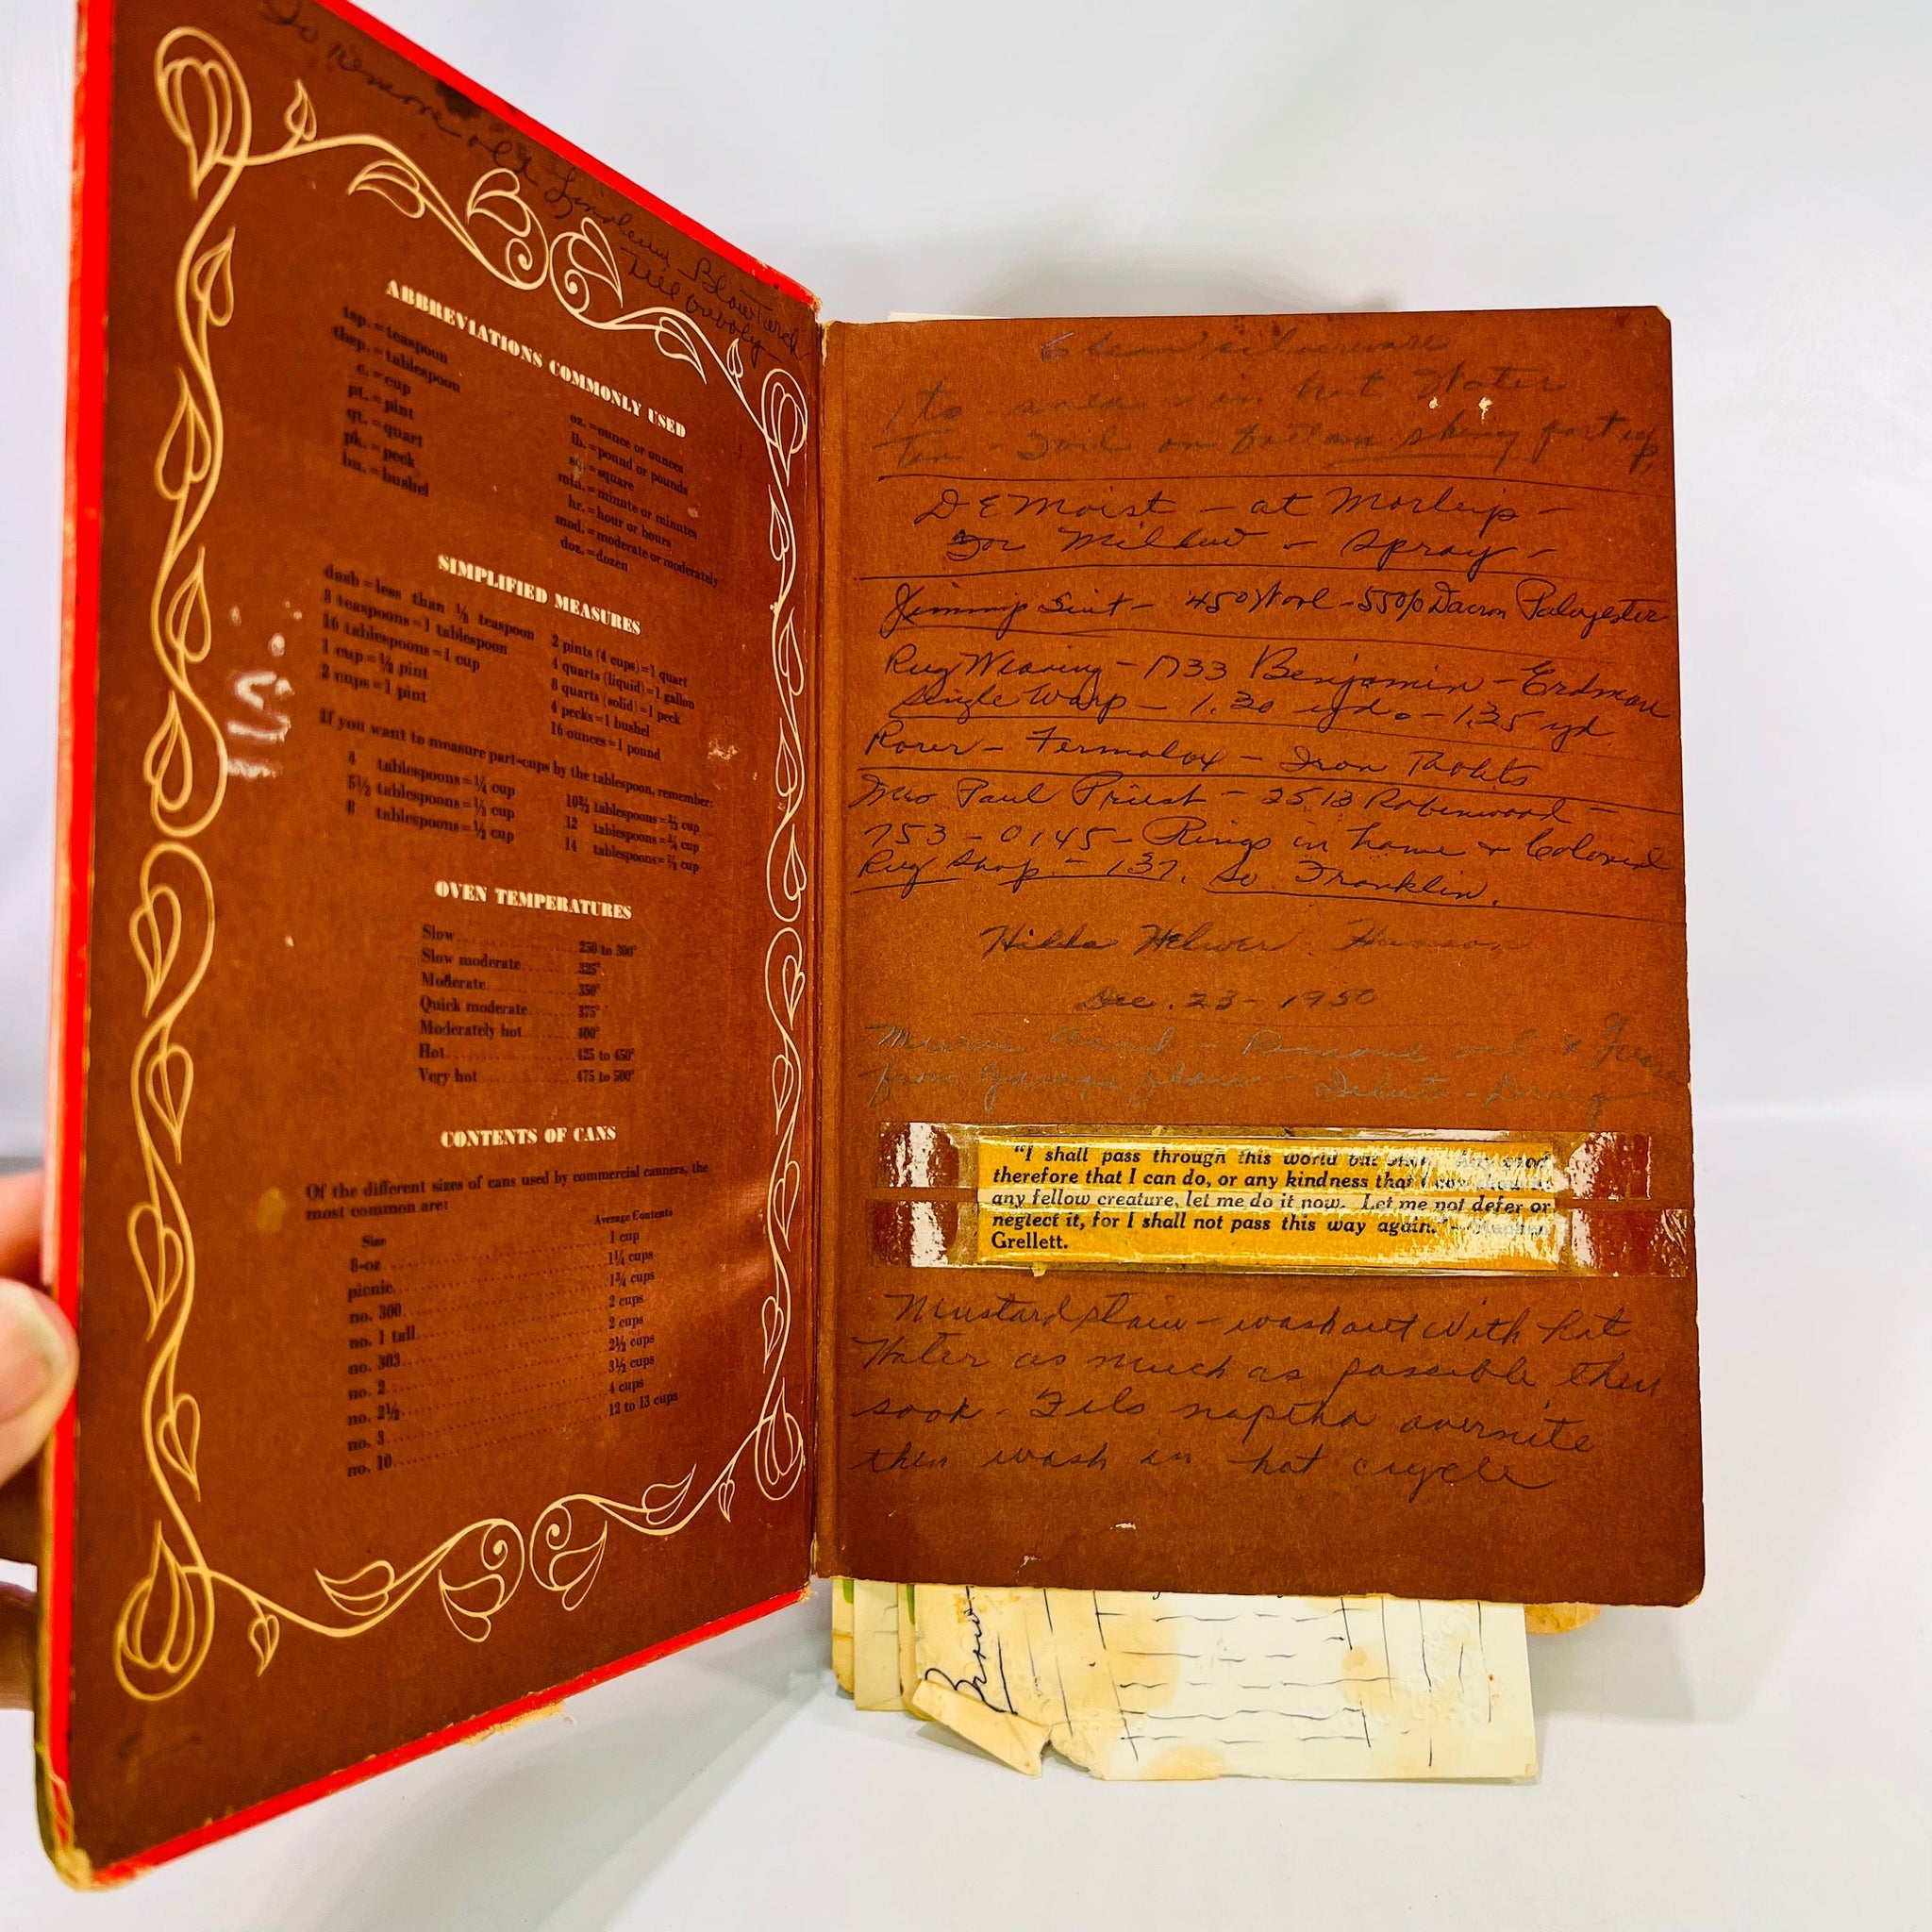 To Remove old Linoleum Blow Torch
Tile
ABBREVIATIONS COMMONLY USED
tsp. = teaspoon
tbsp. = tablespoon
c. = cup
pt. = pint
qt. = quart
pk. = peck
bu. = bushel
oz. = ounce or ounces
lb. = pound or pounds
sq. = square
min. = minute or minutes
hr. = hour or hours
mod. = moderate or moderately
doz. = dozen
SIMPLIFIED MEASURES
dash = less than ⅛ teaspoon
3 teaspoons = 1 tablespoon
16 tablespoons = 1 cup
1 cup = ½ pint
2 cups = 1 pint
2 pints (4 cups) = 1 quart
4 quarts (liquid) = 1 gallon
8 quarts (solid) = 1 peck
4 pecks = 1 bushel
16 ounces = 1 pound
If you want to measure part-cups by the tablespoon, remember:
4 tablespoons = ¼ cup
5⅓ tablespoons = ⅓ cup
8 tablespoons = ½ cup
10⅔ tablespoons = ⅔ cup
12 tablespoons = ¾ cup
14 tablespoons = ⅞ cup
OVEN TEMPERATURES
Slow 250 to 300°
Slow moderate 325°
Moderate 350°
Quick moderate 375°
Moderately hot 400°
Hot 425 to 450°
Very hot 475 to 500°
CONTENTS OF CANS
Of the different sizes of cans used by commercial canners, the
most common are:
Size Average Contents
8-oz 1 cup
picnic 1¼ cups
no. 300 1¾ cups
no. 1 tall 2 cups
no. 303 2 cups
no. 2 2½ cups
no. 2½ 3½ cups
no. 3 4 cups
no. 10 12 to 13 cups
Clean silverware
in hot Water
Tin - Foil on bottom shiny part up
DEMoist - at Morleys -
For Mildew - Spray -
Jimmy Suit - 45% Wool - 55% Dacron Polyester
Rug Weaving - 1733 Benjamin - Erdman
Single Warp - 1.30 yd. - 1.35 yd.
Rorer - Fermalox - Iron
Mrs Paul Priest - 2513 Robinwood -
753 - 0145 - Rings in home & Colonial
Rug Shop - 137. So Franklin.
Hilda Helwer Hanson
Dec. 23 - 1950
Remove oil &
from garage floor
"I shall pass through this world but once. Any good
therefore that I can do, or any kindness that I can show to
any fellow creature, let me do it now. Let me not defer or
neglect it, for I shall not pass this way again."—Stephen
Grellett.
Mustard stain - wash out With hot
Water as much as possible then
soak. Fels naptha overnite
then wash in hot cycle